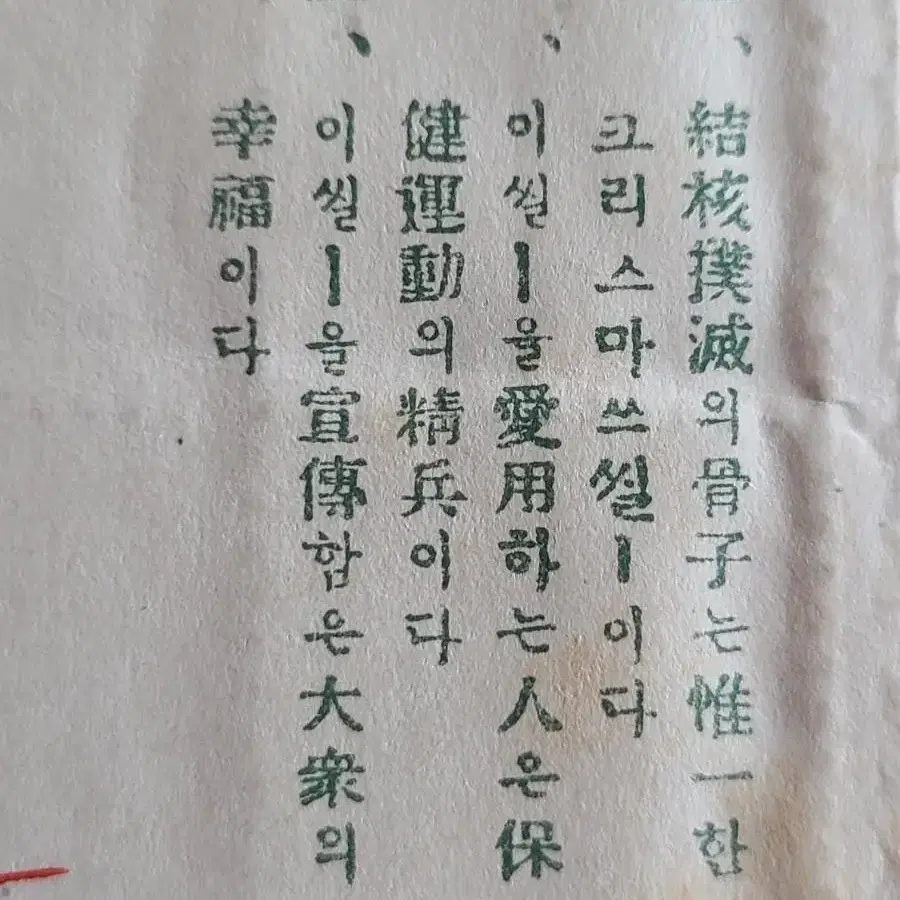 、結核撲滅의骨子는惟一한
크리스마쓰씰ー이다
、이씰ー을愛用하는人은保
健運動의精兵이다
、이씰ー을宣傳함은大衆의
幸福이다